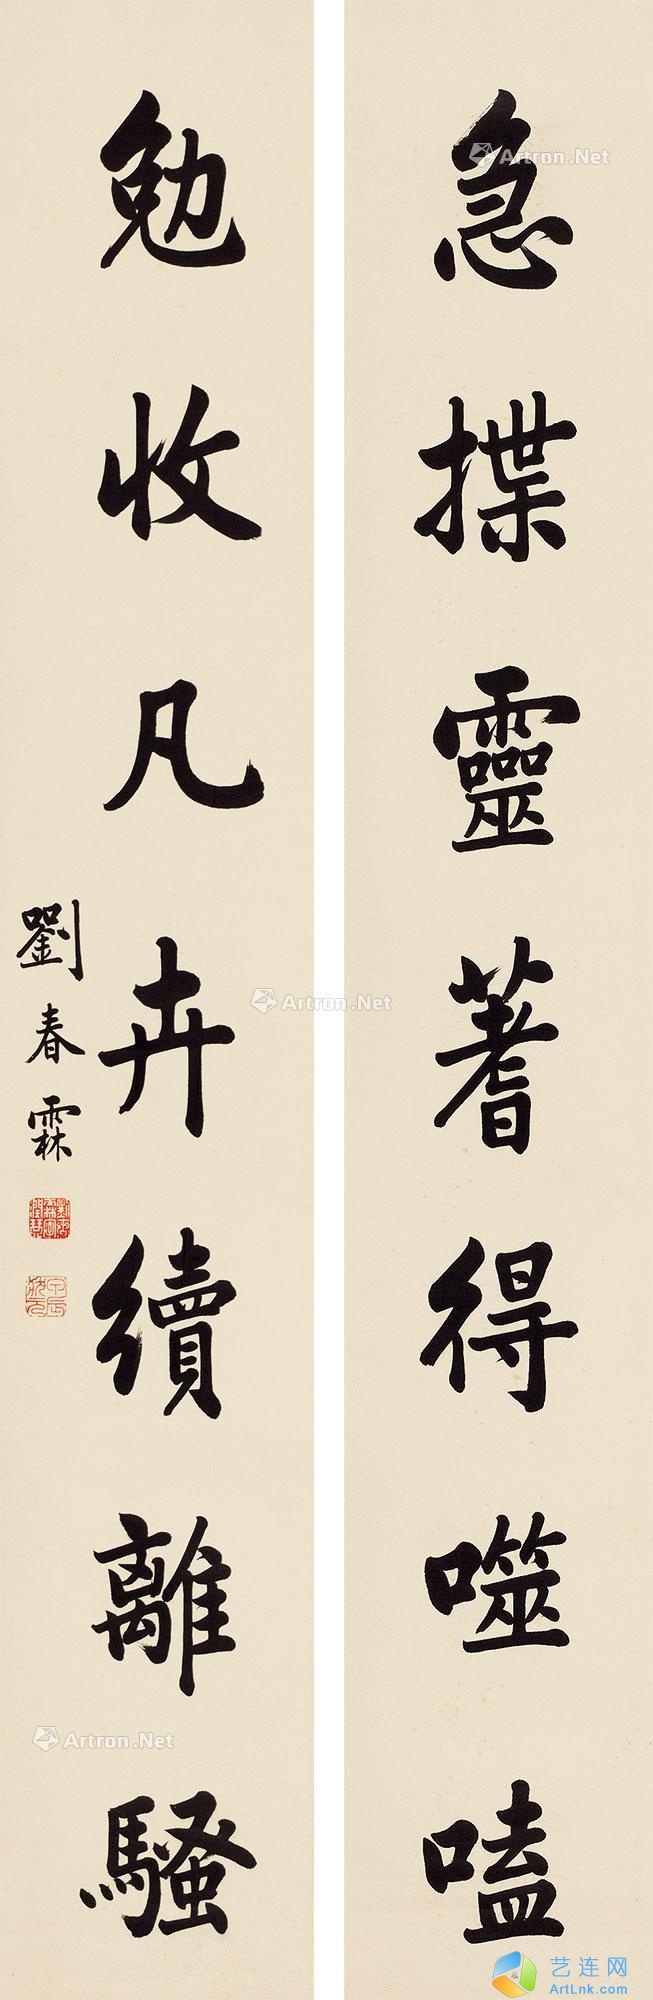 急揲靈蓍得噬嗑
勉收凡卉續離騷
劉春霖
Artron.Net
Artron.Net
Artron.Net
艺连网
ArtLnk.com